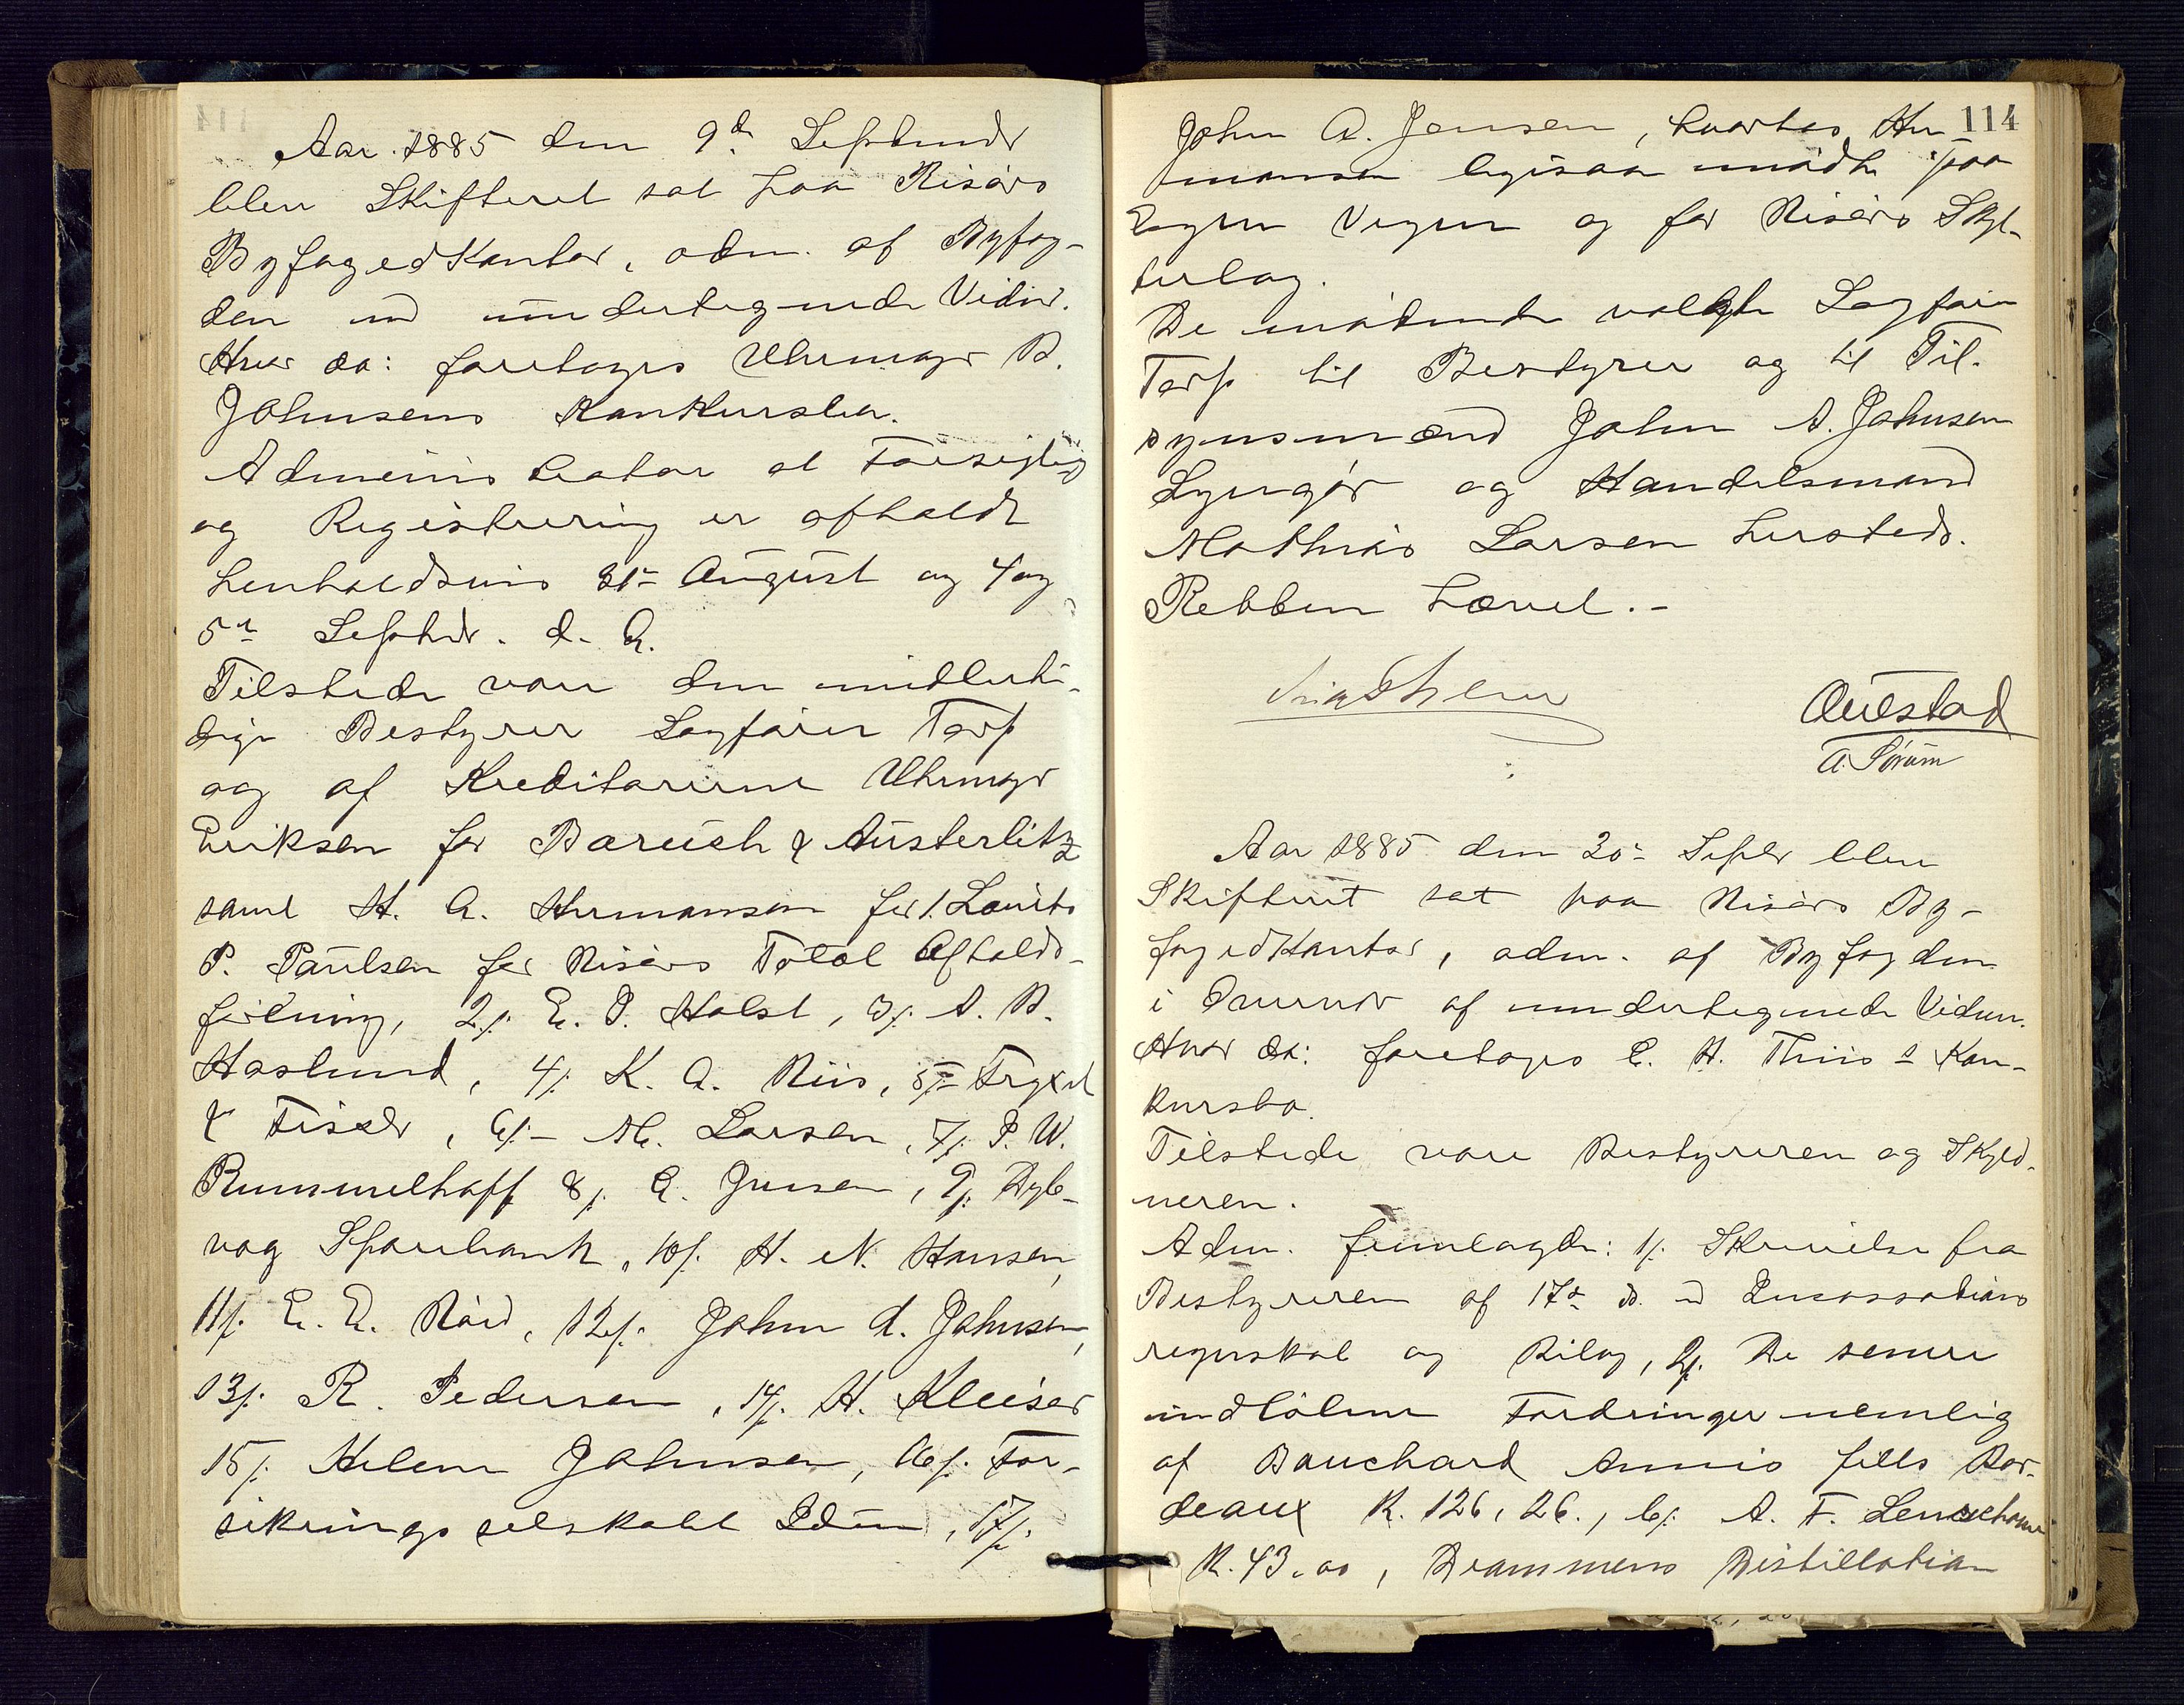 Aar 1885 den 9de Septemdr
blev Skifteret sat paa Risørs
Byfogedkontor, adm. af Byfog-
den md undertegnede Vidnr.
Hvor da: foretoges Uhrmagr B.
Johnsens Konkursbo.
Administrator at Forsegling
og Registrering er afholdt
henholdsvis 31te August og 4 og
5te Septbr. d. A.
Tilstede vare den midlerti-
dige Bestyrer Sagfører Terp
og af Kreditorerne Uhrmagr
Eriksen for Baruch & Austerlitz
samt H. A. Hermansen for 1. Lauits
P. Paulsen for Risørs Total Afholds-
forening, 2/. E. P. Holst, 3/. A. B.
Haslund, 4/. K. A. Riis, 5/-
& Fisser, 6/- M. Larsen, 7/. P. W.
Rummelhoff 8/. E. Jensen, 9/. Dyb-
vag Sparebank, 10/. H. N. Hansen,
11/. E. E. Røed, 12/. John A. Johnsen,
13/. R. Pedersen, 14/. H. Kleiser
15/. Helene Johnsen, 16/. For-
sikringsselskabet Idun, 17/.
114
John A. Jensen, hvorhos Her-
mansen ligesaa mødte paa
Egne Vegne og for Risørs Skyt-
terlag.
De mødende valgte Sagfører
Terp til Bestyrer og til Til-
synsmænd John A. Johnsen
Lyngør og Handelsmand
Mathias Larsen hersteds.
Retten hævet.-
Auestad
A. Sørum
Aar 1885 den 30te Septbr blev
Skifteret sat paa Risørs By-
fogedkontor, adm. af Byfogden
i Overvær af undertegnede Vidner.
Hvor da: foretoges C. H. Thiis's Kon-
kursbo.
Tilstede vare Bestyreren og Skyld-
neren.
Adm. fremlagde: 1/. Skrivelse fra
Bestyreren af 17de ds. md Incassations
regnskab og Bilag, 2/. De senere
indløbne Fordringer nemlig
af Bouchard fills Bor-
deaux K. 126,26., b/. A. F.
K. 43.00, Drammens Distillation